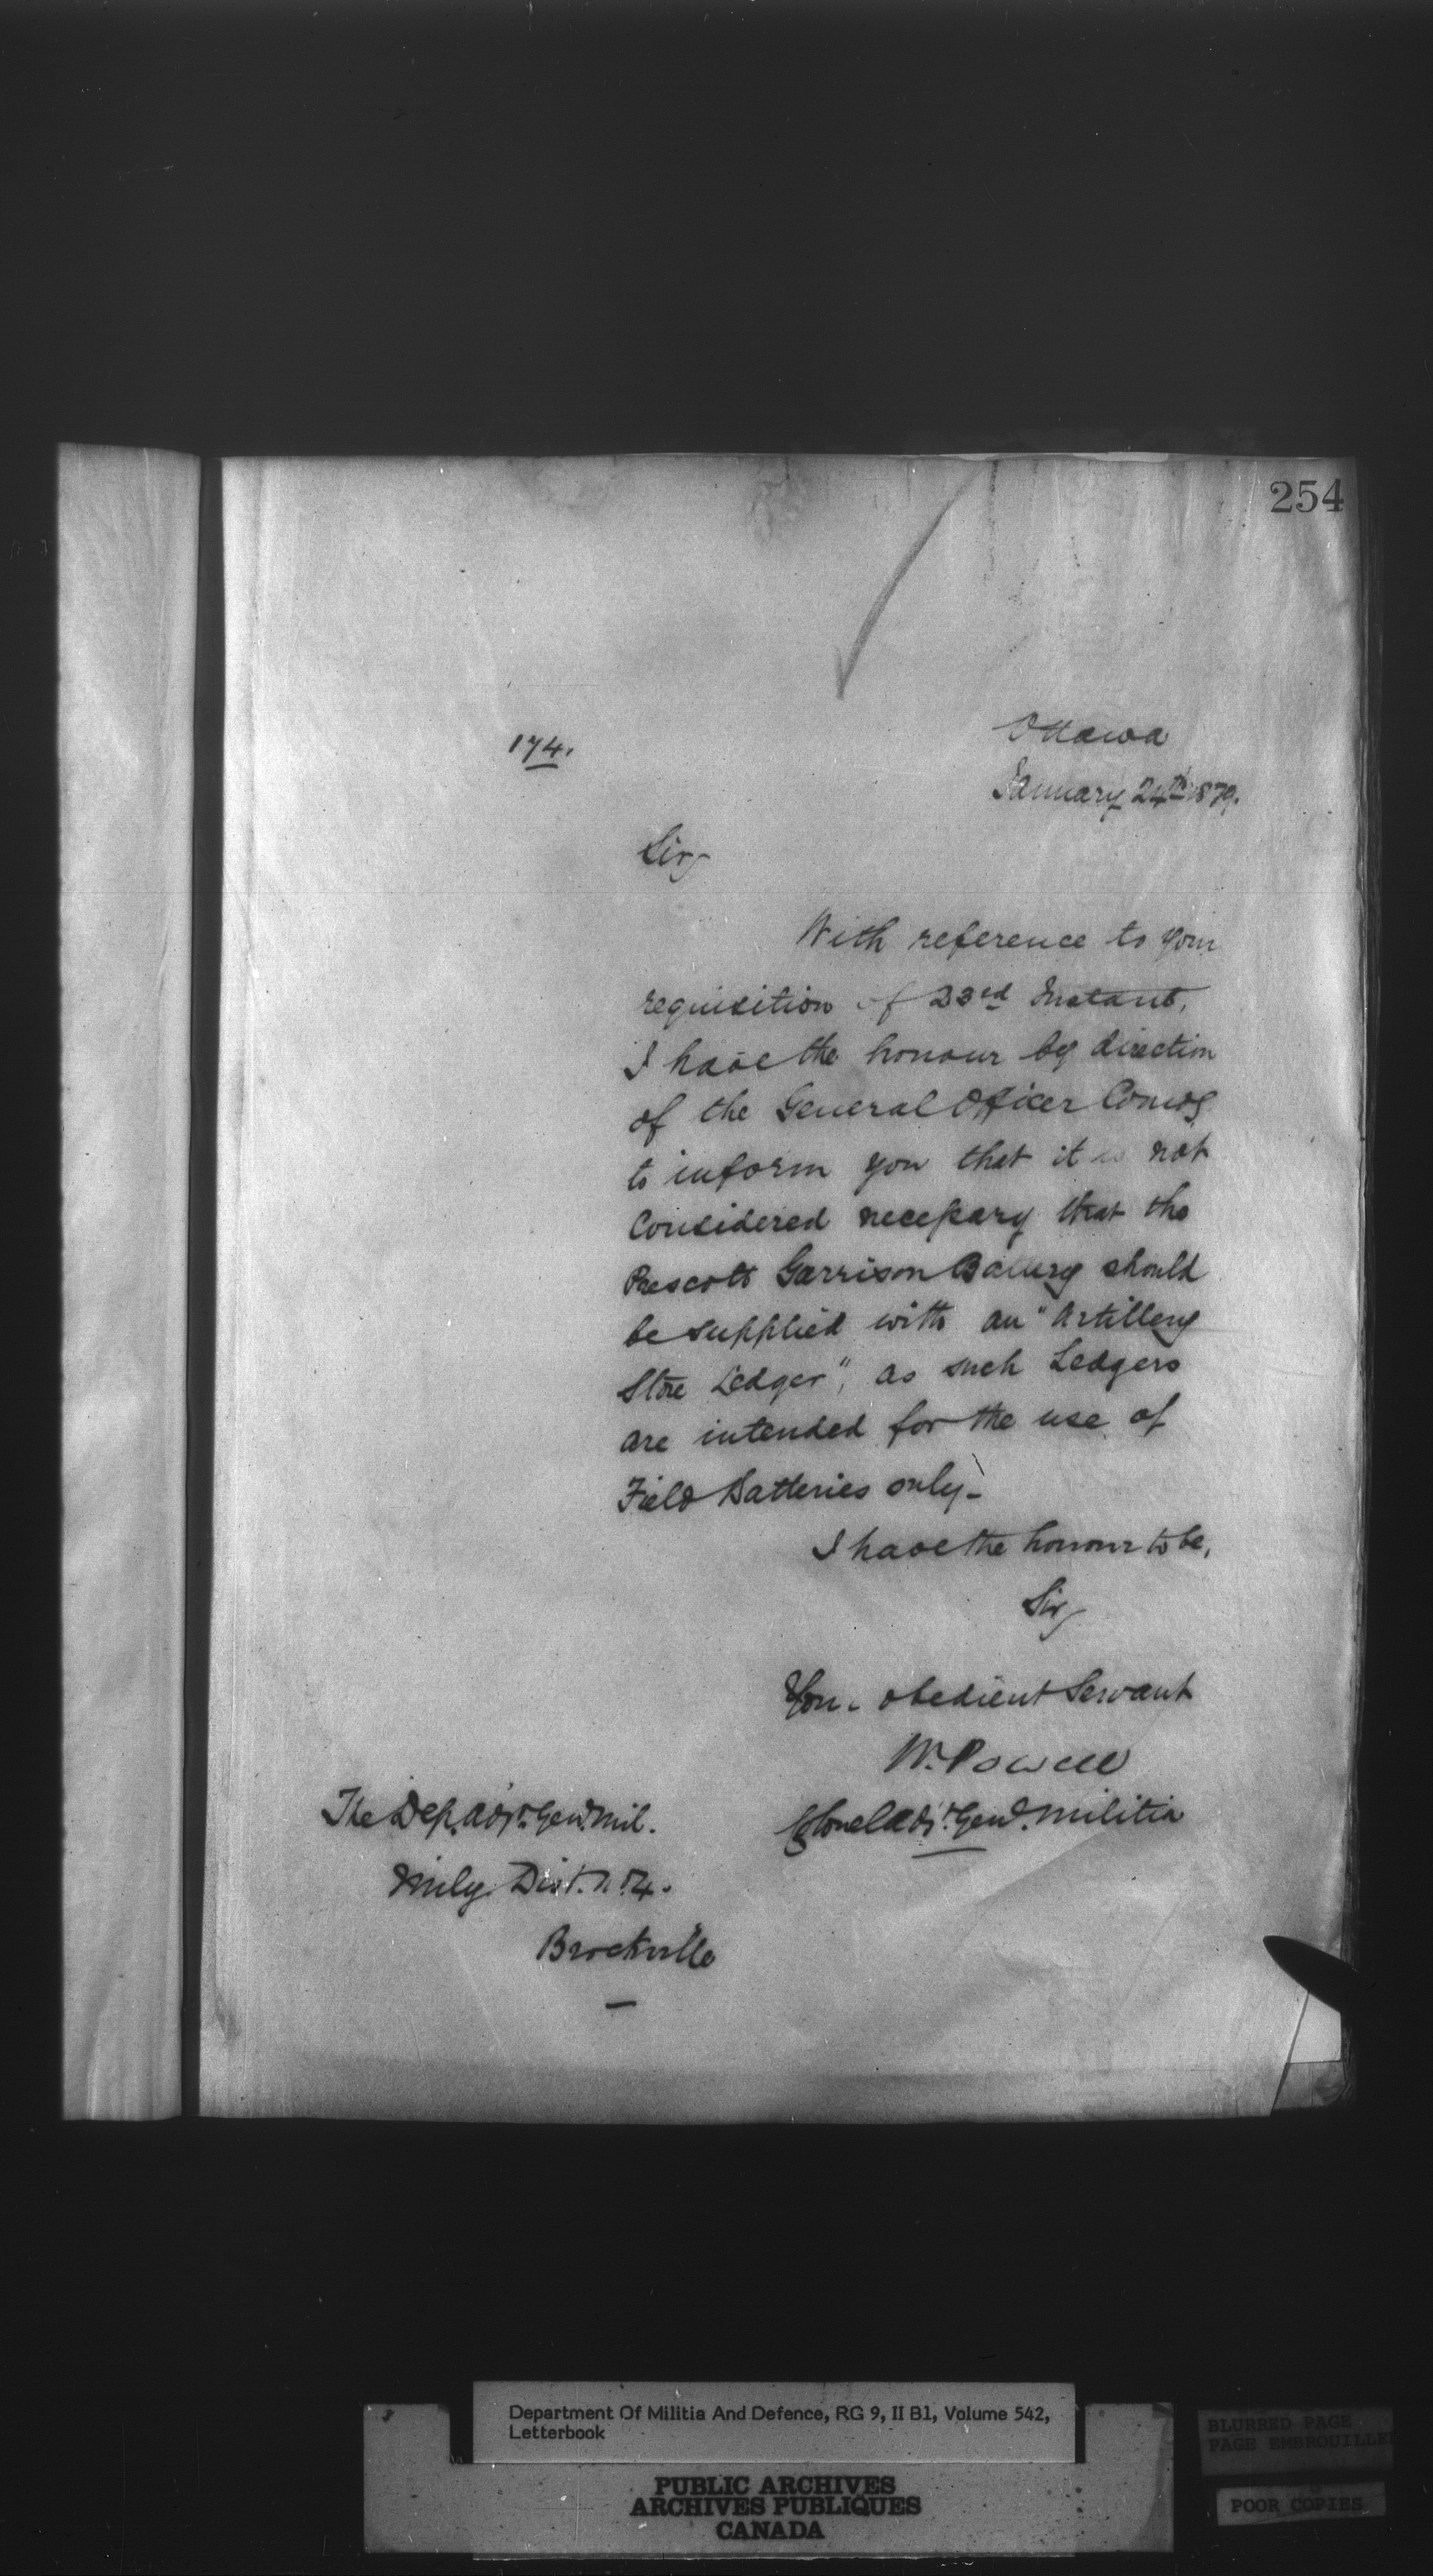 254
174.
Ottawa
January 24th 1879.
Sir,
With reference to your
requisition of 23rd Instant,
I have the honour by direction
of the General Officer Comdg
to inform you that it is not
Considered necessary that the
Prescott Garrison Battery should
be supplied with an "Artillery
Store Ledger", as such Ledgers
are intended for the use of
Field Batteries only-
I have the honour to be,
Sir,
Your obedient Servant
W. Powell
Colonel Adjt. Genl. Militia
The Dep. Adjt. Genl. Mil.
Mily. Dist. No. 4.
Brockville
Department Of Militia And Defence, RG 9, II B1, Volume 542,
Letterbook
PUBLIC ARCHIVES
ARCHIVES PUBLIQUES
CANADA
BLURRED PAGE
PAGE EMBROUILLE
POOR COPIES